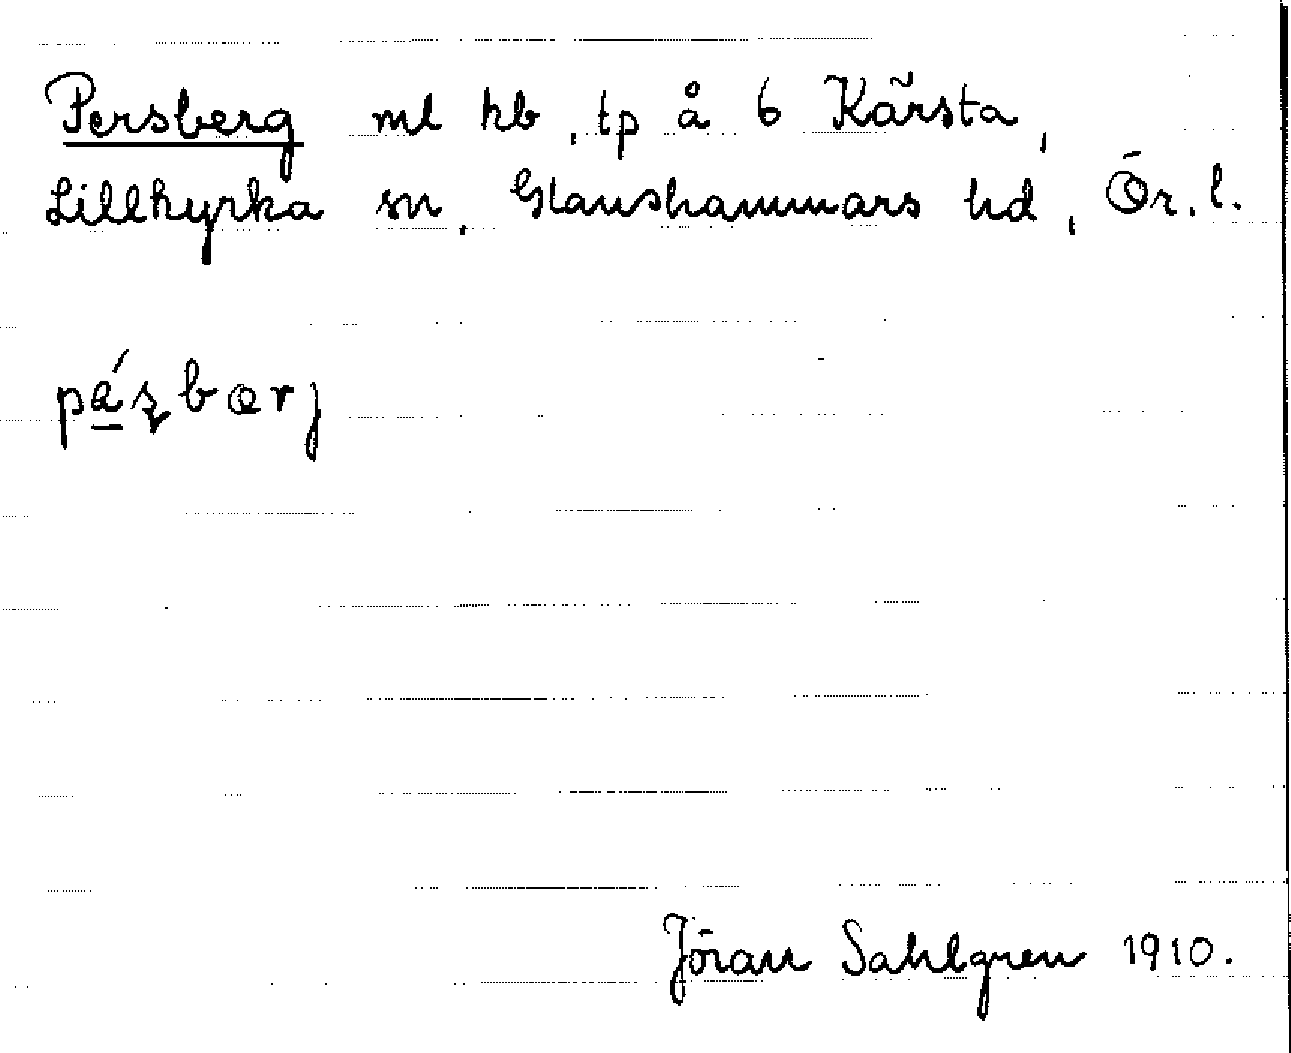 Persberg ml hb, tp å 6 Kärsta,
Lillkyrka sn, Glanshammars hd, Ör. l.
pa̲´ʂbærj
Jöran Sahlgren 1910.